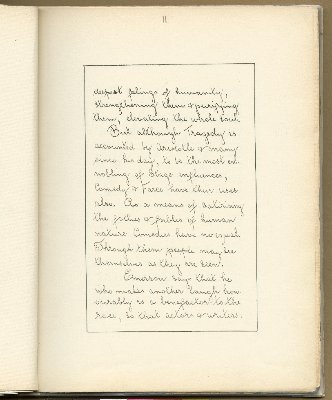 11
deepest feelings of humanity,
strengthening them & purifying
them, elevating the whole soul.
But although Tragedy is
accounted by Aristotle & many
since his day, to be the most en-
nobling of Stage influences,
Comedy & Farce have their uses
also. As a means of satirizing
the follies & foibles of human
nature Comedies have no equal.
Through them people may see
themselves as they are seen.
Emerson says that he
who makes another laugh hon-
ourably is a benefactor to the
race, so that actors & writers